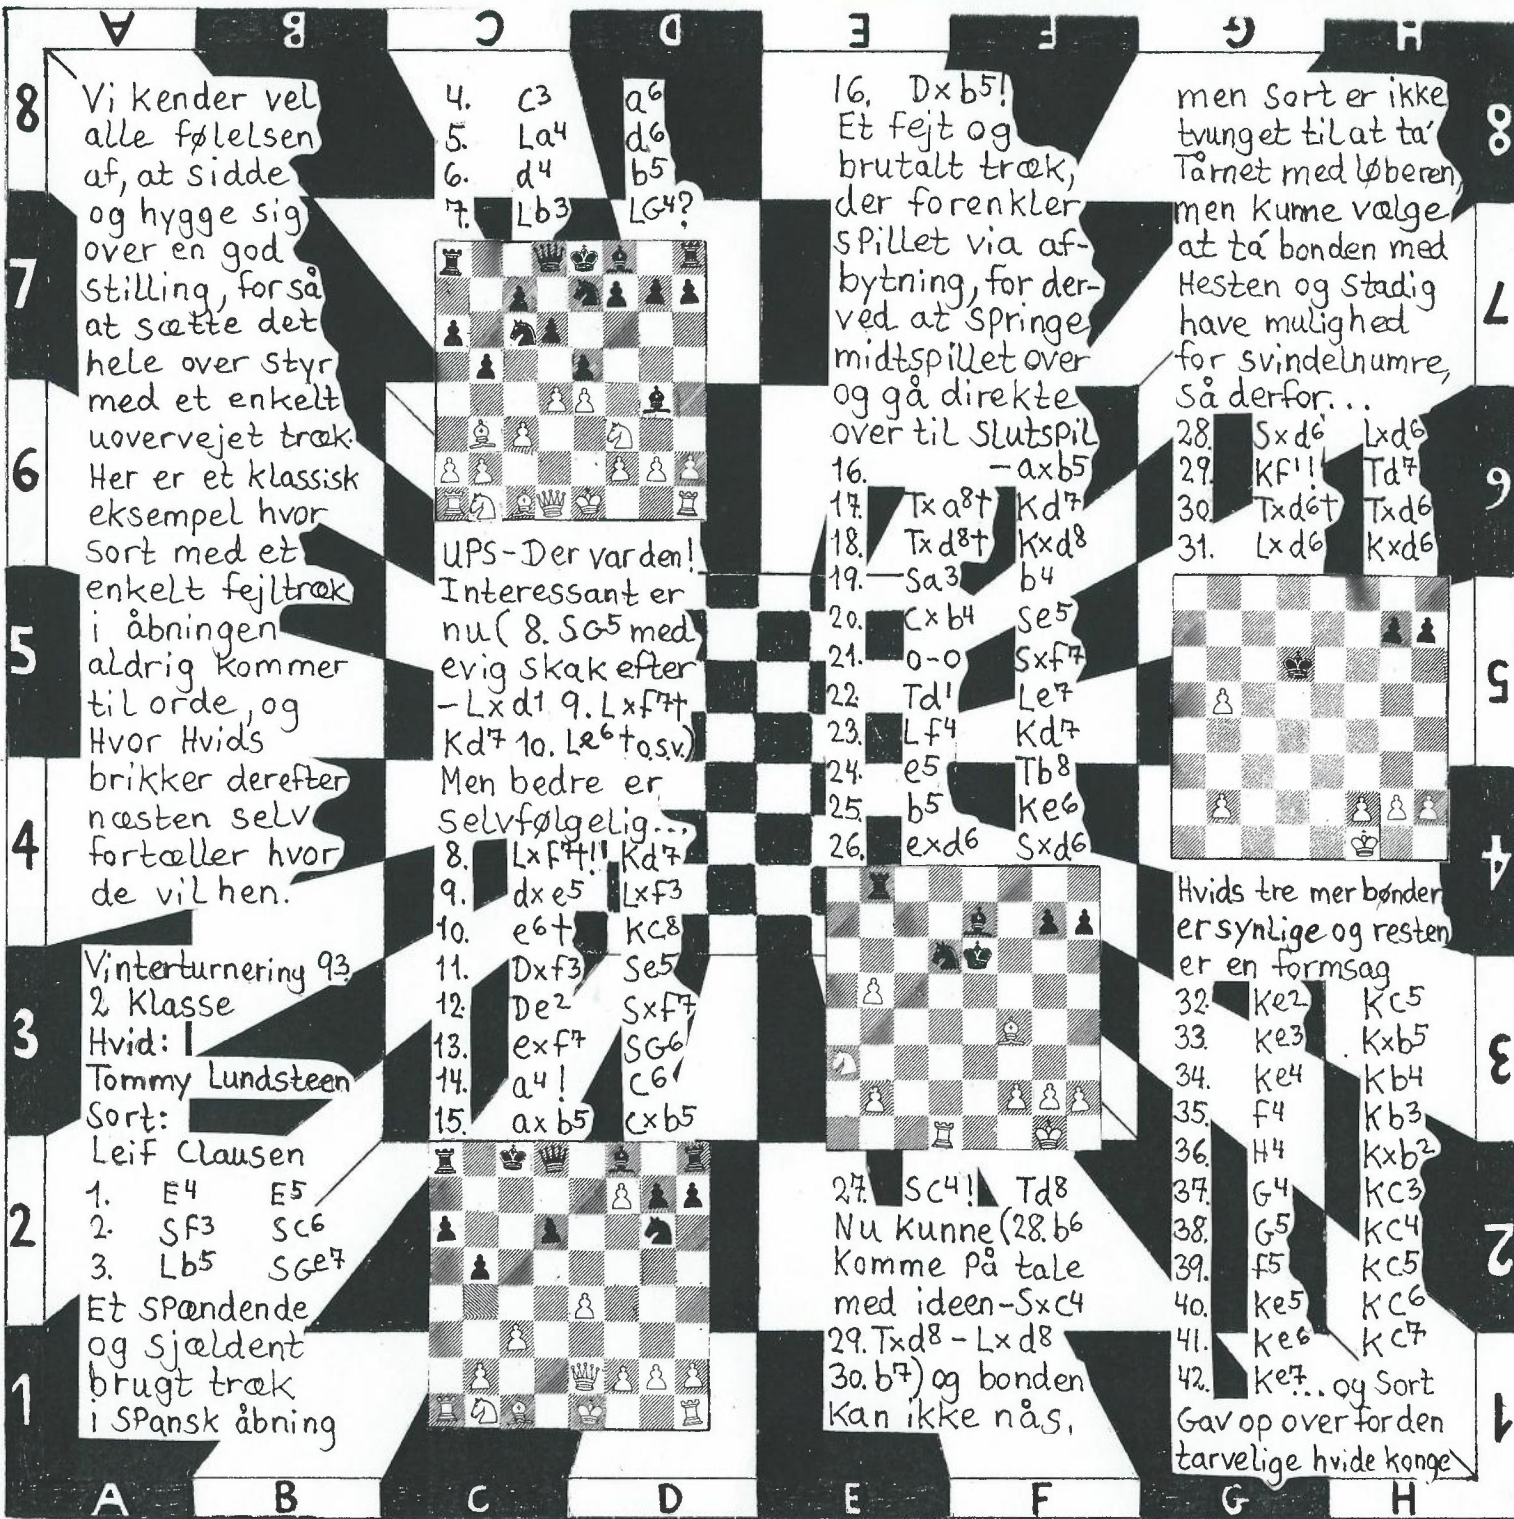 A B C D E F G H
8
7
6
5
4
3
2
1
Vi kender vel
alle følelsen
af, at sidde
og hygge sig
over en god
stilling, for så
at sætte det
hele over styr
med et enkelt
uovervejet træk.
Her er et klassisk
eksempel hvor
Sort med et
enkelt fejltræk
i åbningen
aldrig kommer
til orde, og
Hvor Hvids
brikker derefter
næsten selv
fortæller hvor
de vil hen.
Vinterturnering 93
2 Klasse
Hvid:
Tommy Lundsteen
Sort:
Leif Clausen
1. E4 E5
2. Sf3 Sc6
3. Lb5 SGe7
Et Spændende
og Sjældent
brugt træk
i Spansk åbning
4. c3 a6
5. La4 d6
6. d4 b5
7. Lb3 LG4?
UPS-Der var den!
Interessant er
nu (8. SG5 med
evig skak efter
-Lxd1 9. Lxf7†
Kd7 10. Le6† o.s.v.)
Men bedre er
Selvfølgelig...
8. Lxf7†!! Kd7
9. dxe5 Lxf3
10. e6† KC8
11. Dxf3 Se5
12. De2 Sxf7
13. exf7 SG6
14. a4! C6
15. axb5 cxb5
16. Dxb5!
Et fejt og
brutalt træk,
der forenkler
Spillet via af-
bytning, for der-
ved at Springe
midtspillet over
og gå direkte
over til Slutspil
16. -axb5
17. Txa8† Kd7
18. Txd8† Kxd8
19. Sa3 b4
20. Cxb4 Se5
21. 0-0 Sxf7
22. Td1 Le7
23. Lf4 Kd7
24. e5 Tb8
25. b5 Ke6
26. exd6 Sxd6
27. SC4! Td8
Nu kunne (28. b6
Komme På tale
med ideen-Sxc4
29. Txd8-Lxd8
30. b7) og bonden
Kan ikke nås.
men Sort er ikke
tvunget til at ta'
Tårnet med løberen,
men kunne vælge
at ta' bonden med
Hesten og stadig
have mulighed
for svindelnumre,
Så derfor...
28. Sxd6 Lxd6
29. Kf1! Td7
30. Txd6† Txd6
31. Lxd6 Kxd6
Hvids tre merbønder
er synlige og resten
er en formsag
32. Ke2 KC5
33. Ke3 Kxb5
34. Ke4 Kb4
35. f4 Kb3
36. H4 Kxb2
37. G4 KC3
38. G5 KC4
39. f5 KC5
40. Ke5 KC6
41. Ke6 KC7
42. Ke7... og Sort
Gav op over for den
tarvelige hvide konge
8
7
6
5
4
3
2
1
A B C D E F G H